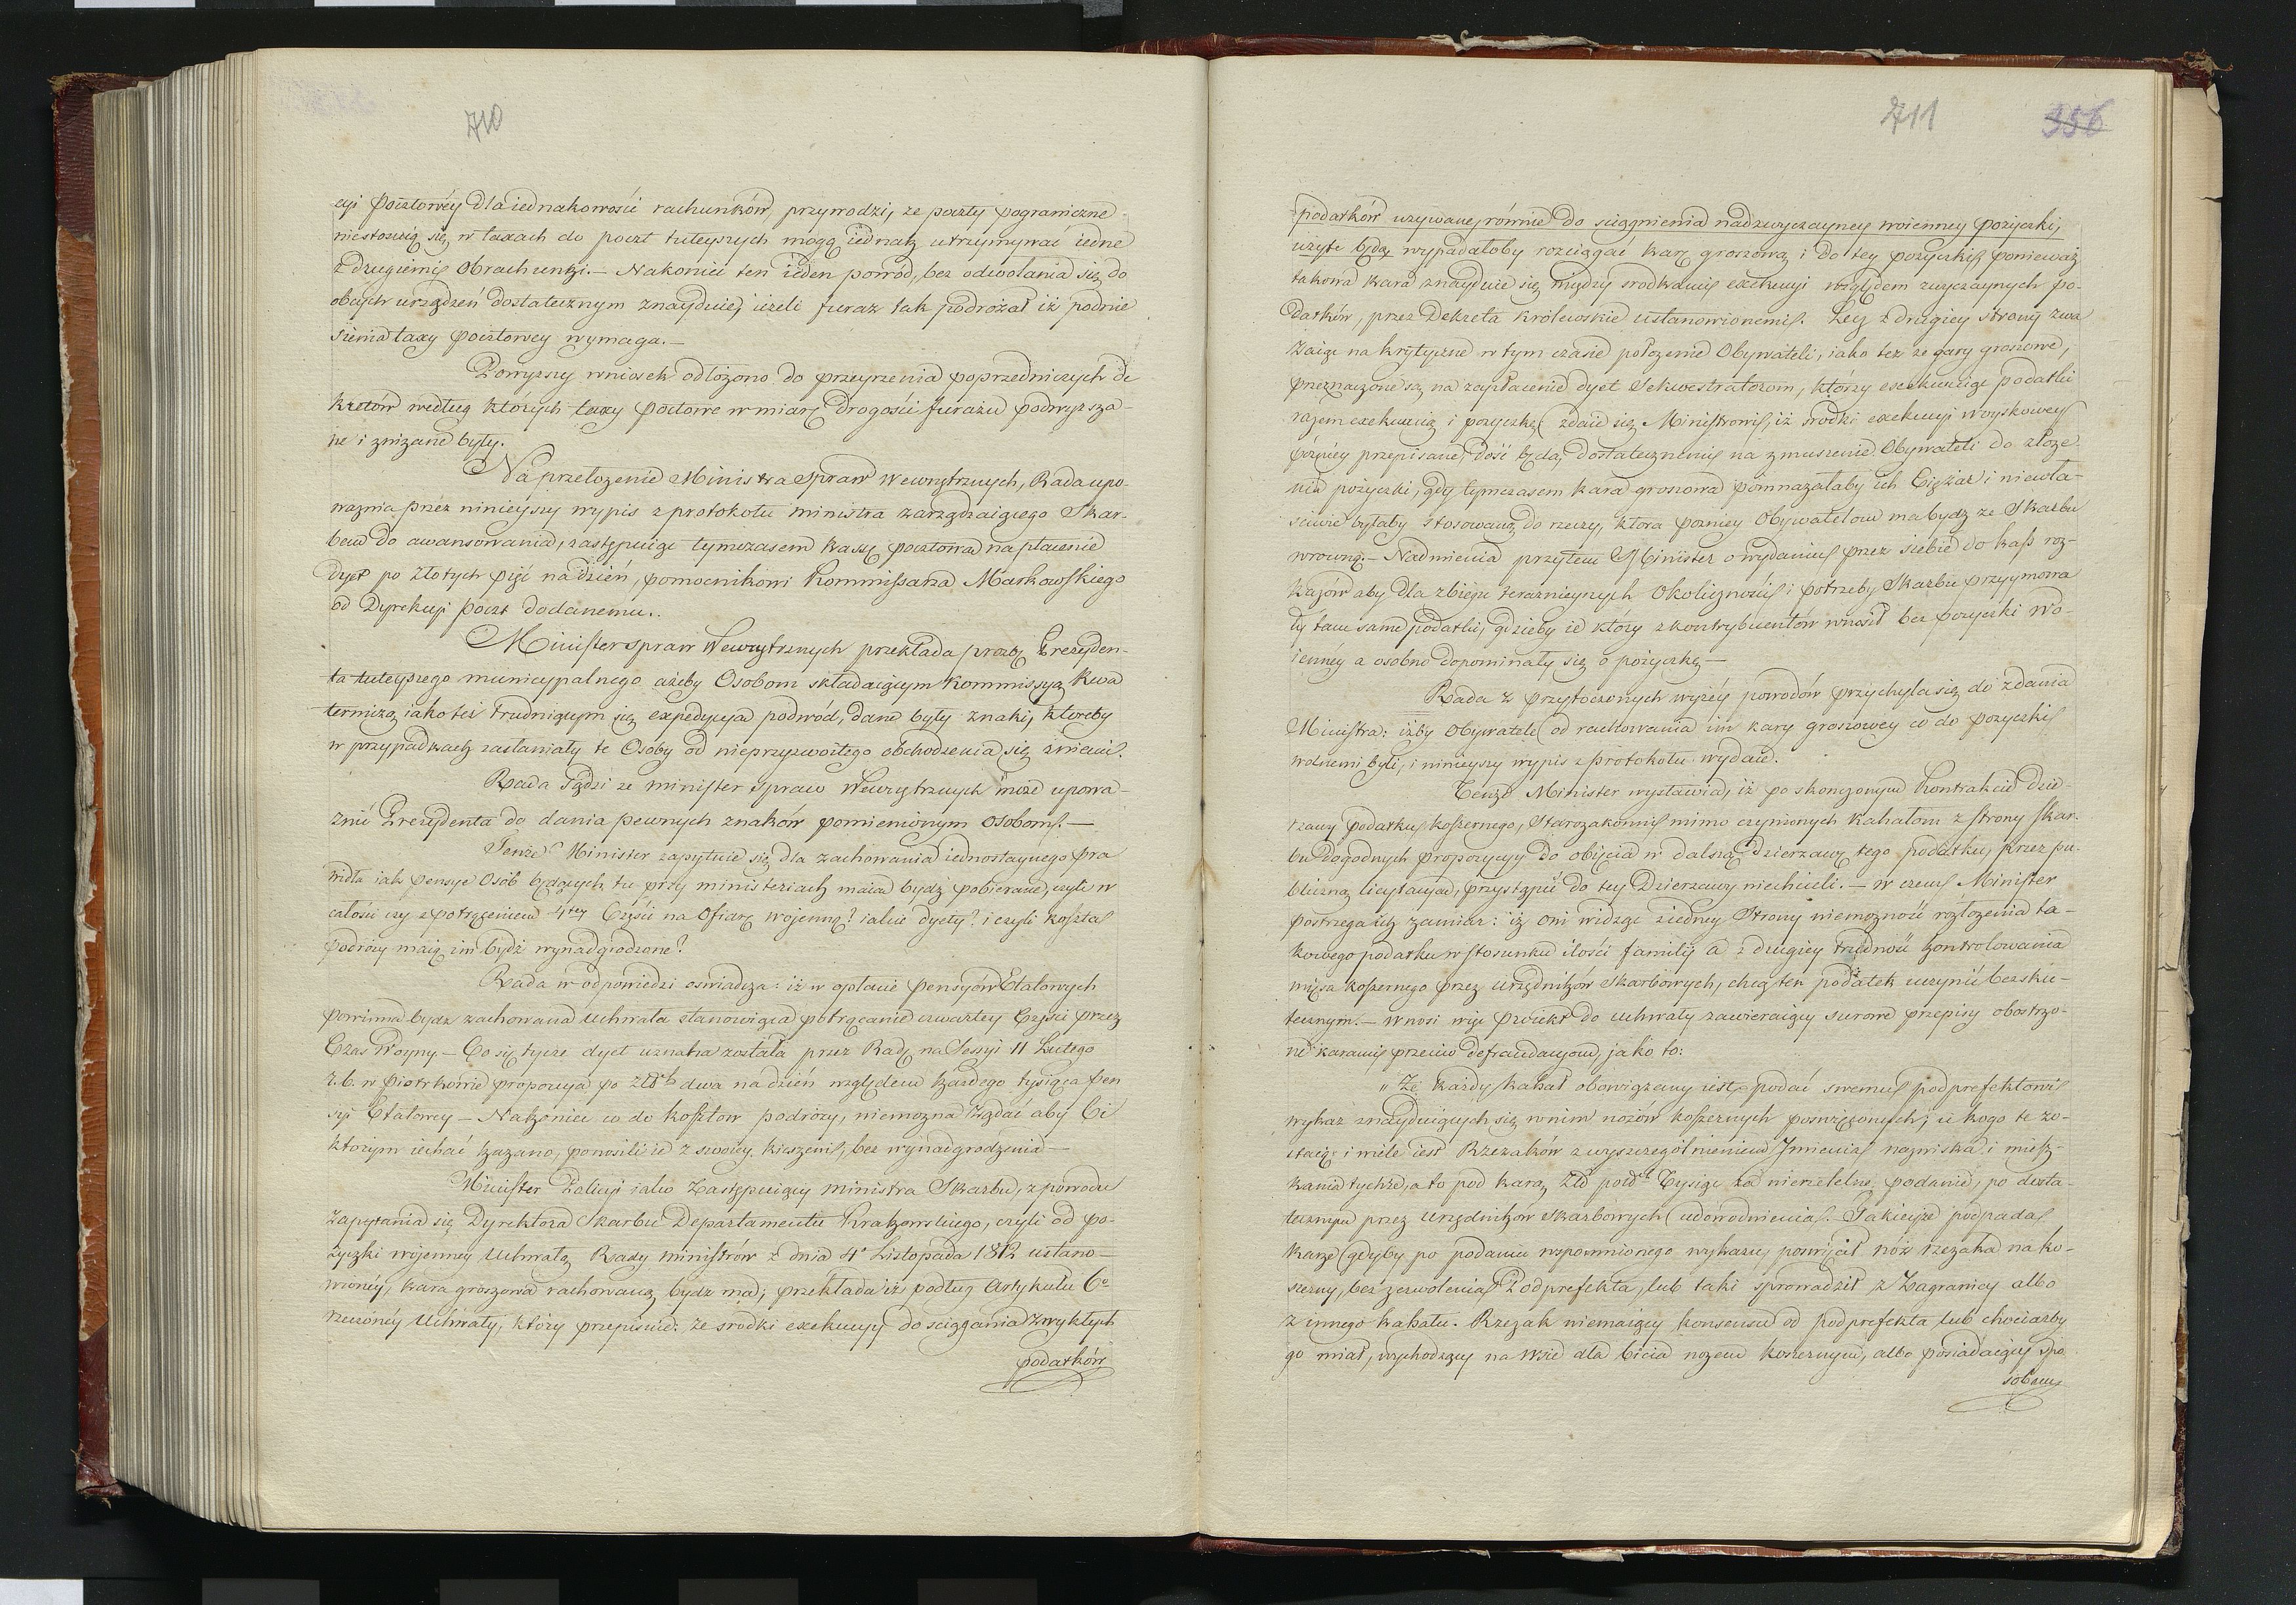 710
cyi pocztowéy dla iednakowości rachunków, przywodzi, że poczty pograniczne
niestosuią się w taxach do poczt tuteyszych mogą iednak utrzymywać iedne
z drugiemi Obrachunki. — Nakoniec ten ieden powód, bez odwołania się do
obcych urządzeń dostatecznym znayduie, ieżeli furaz tak podrożał iż podnie
sienia taxy pocztowey wymaga. —
Powyższy wniosek odłożono do przeyrzenia poprzedniczych de
kretów według których taxy pocztowe w miarę drogości furażu podwyższa-
ne i zniżane były.
Na przełożenie Ministra Spraw Wewnętrznych, Rada upo-
ważnia przez ninieyszy wypis z protokołu ministra zarządzaiącego Skar-
bem do awansowania, zastępuiąc tymczasem kassę pocztową na płacenie
dyet po złotych pięć na dzień, pomocnikowi Kommissarza Markowskiego
od Dyrekcyi poczt dodanemu..
Minister spraw Wewnętrznych przekłada prozbę Prezyden-
ta tuteyszego municypalnego ażeby Osobom składaiącym Kommissyą Kwa
terniczą iako też trudniącym się expedycyą podwód, dane były znaki, ktoreby
w przypadkach zasłaniały te Osoby od nieprzyzwoitego obchodzenia się z niemi.
Rada sądzi że minister Spraw Wewnętrznych może upowa-
żnić Prezydenta do dania pewnych znaków pomienionym osobom. —
Tenże Minister zapytuie się dla zachowania iednostaynego pra
widła iak pensye Osób będących tu przy ministeriach maią bydź pobierane, czyli w
całości czy z potrąceniem 4tey Części na Ofiarę wojenną? iakie dyety? i czyli koszta
podróży maią im bydź wynadgrodzone?
Rada w odpowiedzi oświadcza: iż w opłacie pensyów Etatowych
powinna bydz zachowana Uchwała stanowiąca potrącanie czwartey Części przez
Czas Woyny — Co się tycze dyet uznana została przez Radę na Sessyi 11 Lutego
r. b. w Piotrkowie propozycya po Złotych dwa na dzień względem każdego tysiąca pen
syi Etatowey — Nakoniec co do kosztow podróży, niemożna żądać aby Ci
którym iechać kazano, ponosili ie z swoiey kieszeni, bez wynadgrodzenia —
Minister Policyi iako Zastępuiący ministra Skarbu, z powodu
zapytania się Dyrektora Skarbu Departamentu Krakowskiego, czyli od po-
życzki wojenney Uchwałą Rady ministrów z dnia 4° Listopada 1812 ustano-
wionéy, kara groszowa rachowaną bydz ma, przekłada iż podług Artykułu 6°
rzeczonéy Uchwały, który przepisuie: że srodki exekucyi do sciągania zwykłych
podatków
711
356
podatków używane, równie do sciągnienia nadzwyczayney woienney pożyczki,
użyte będą wypadałoby rozciągać karę groszową i do tey pożyczki ponieważ
takowa kara znayduie się między srodkami exekucyi względem zwyczaynych po-
datków, przez Dekreta Królewskie ustanowionemi. Lecz z drugiey strony zwa
żaiąc na krytyczne w tym czasie położenie Obywateli, iako też że gary groszowe,
przeznaczone są na zapłacenie dyet Sekwestratorom, którzy exekwuiąc podatki
razem exekwuią i pożyczkę zdaie się Ministrowi, iż środki exekucyi woyskowey
późniéy przepisane, dość będą dostatecznemi na zmuszenie Obywateli do złoże-
nia pożyczki, gdy tymczasem kara groszowa pomnażałaby ich Ciężar i niewła-
ściwie byłaby stosowaną do rzeczy, ktora pozniey Obywatelom ma bydz ze Skarbu
wrocuną. — Nadmienia przytem Minister o wydaniu przez siebie do kass roz-
kazów aby dla zbiegu teraznieyszych Okoliczności i potrzeby Skarbu przyymowa
ły tam same podatki, gdzieby ie który z kontrybuentów wnosił bez pożyczki wo-
ienney a osobno dopominały się o pożyczkę —
Rada z przytoczonych wyżéy powodów przychyla się do zdania
Ministra: iżby Obywatele od rachowania im kary groszowey co do pożyczki
wolnemi byli, i ninieyszy wypis z protokołu wydaie.
Tenże Minister wystawia, iż po skonczonym Kontrakcie dzie-
rżawy podatku koszernego, Starozakonni mimo czynionych kahałom z strony Skar-
bu dogodnych propozycyy do obięcia w dalszą dzierzawę tego podatku, przez pu-
bliczną licytacyą, przystąpić do tey Dzierzawy niechcieli. — W czem Minister
postrzega ich zamiar: iż oni widząc z iedney Strony niemożność rozłożenia ta-
kowego podatku w stosunku ilości familij a z drugiey trudność kontrolowania
mięsa koszernego przez urzędników Skarbowych, chcą ten podatek uczynić bezsku-
tecznym. — Wnosi więc Proiekt do uchwały zawieraiący surowe przepisy obostrzo-
ne karami przeciw defraudacyom, jako to:
„ Że każdy kahał obowiązany iest podać swemu podprefektowi
wykaz znayduiących się w nim nożów koszernych poswięconych; u kogo te zo-
staią i wiele iest Rzezaków z wyszczególnieniem Imienia nazwiska i miesz-
kania tychże, a to pod karą Zło pols. Tysiąc za nierzetelne podanie, po dosta-
tecznym przez Urzędników Skarbowych udowodnieniu. Takieyże podpada
karze gdyby po podaniu wspomnionego wykazu, poswięcał nóż rzezaka na ko-
szerny, bez zezwolenia Podprefekta, lub taki sprowadził z Zagranicy albo
z innego kahału. Rzezak niemaiący konsensu od podprefekta lub chociażby
go miał, wychodzący na Wsie dla bicia nożem koszernym, albo posiadaiący spo
sobem